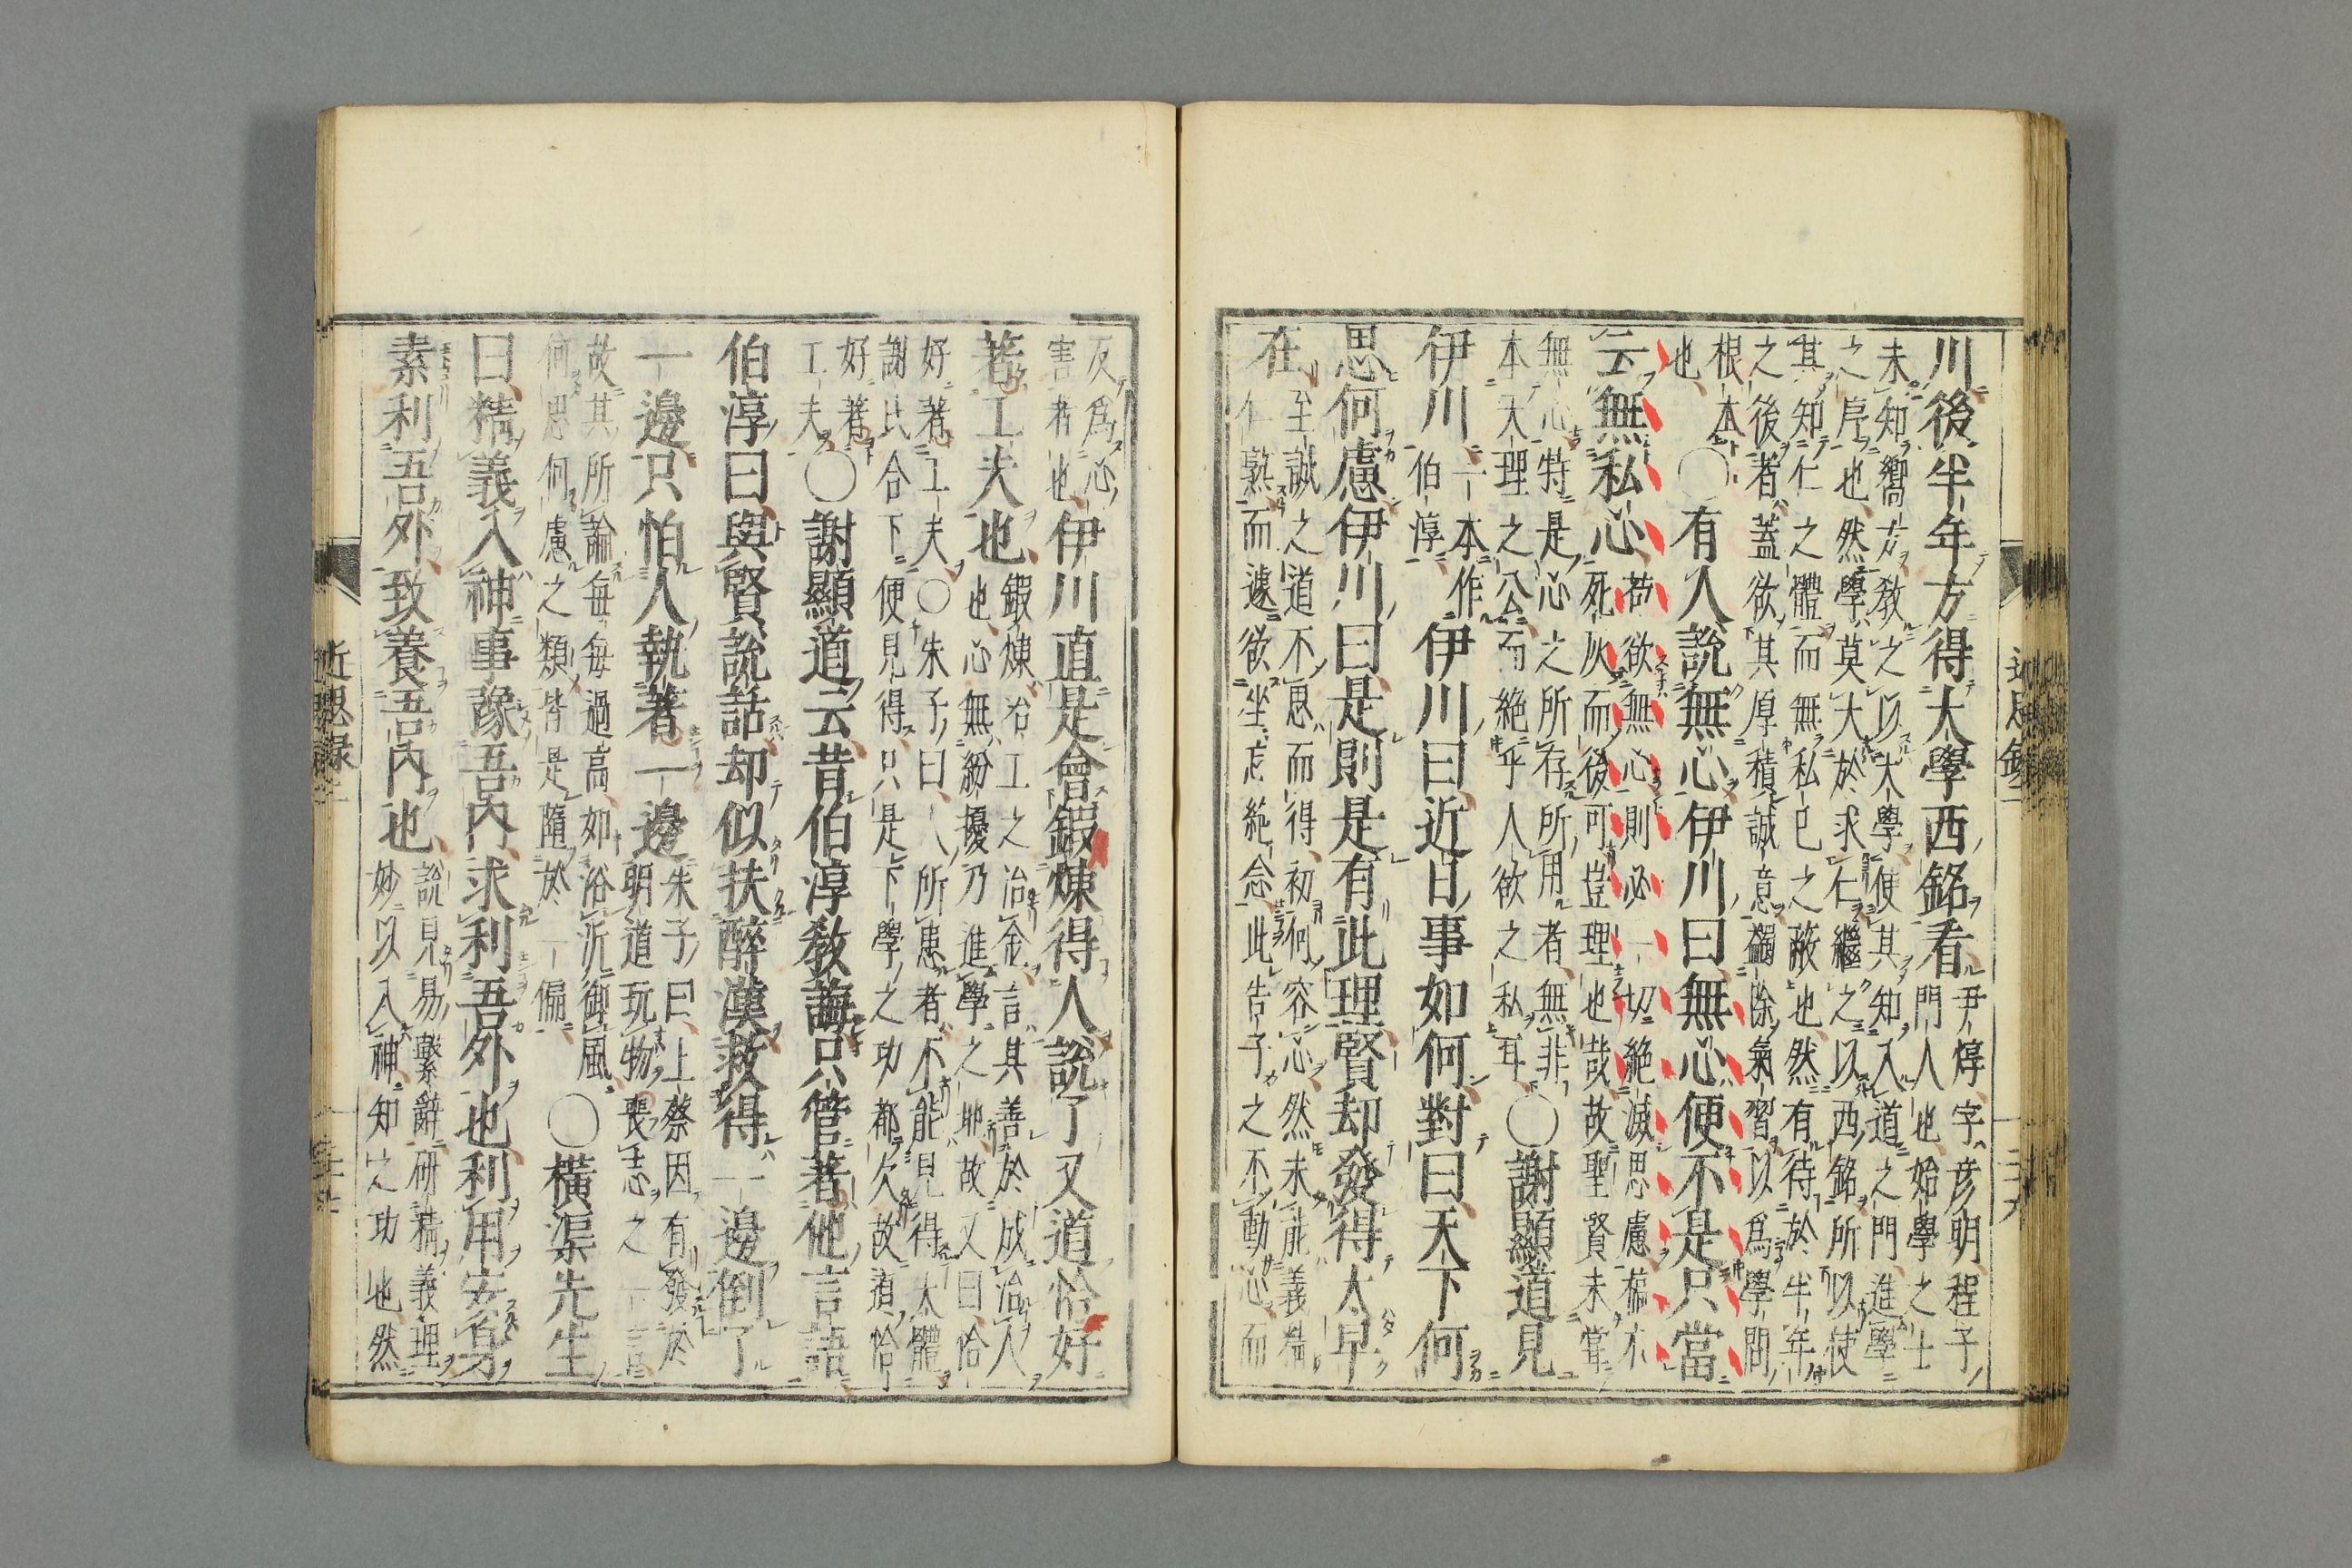 川後半年方得大學西銘看尹焞字彥明程子
門人也始學之士
未知嚮方敎之以大學使其知入道之門進學
之序也然學莫大於求仁繼之以西銘所以使
其知仁之體而無私已之蔽也然有待於半年
之後者蓋欲其厚積誠意蠲除氣習以爲學問
根本
也〇有人說無心伊川曰無心便不是只當
云無私心苟欲無心則必一切絕滅思慮槁木
死灰而後可豈理也哉故聖賢未嘗
無心特是心之所存所用者無非
本天理之公而絕乎人欲之私耳〇謝顯道見
伊川一本作
伯淳伊川曰近日事如何對曰天下何
思何慮伊川曰是則是有此理賢却發得太早
在至誠之道不思而得初何容心然未能義精
仁熟而遽欲坐忘絕念此告子之不動心而
反爲心
害者也伊川直是會鍛煉得人說了又道恰好
著工夫也鍛煉冶工之冶金言其善於成治人
也心無紛擾乃進學之地故又曰恰
好著工夫〇朱子曰人所患者不能見得大體
謝氏合下便見得只是下學之功都欠故道恰
好著
工夫〇謝顯道云昔伯淳敎誨只管著他言語
伯淳曰與賢說話却似扶醉漢救得一邊倒了
一邊只怕人執著一邊朱子曰上蔡因有發於
明道玩物喪志之一言
故其所論每每過高如浴沂御風
何思何慮之類皆是隨於一偏〇橫渠先生
曰精義入神事豫吾內求利吾外也利用安身
素利吾外致養吾內也說見易繫辭研精義理
妙以入神知之功也然
近思錄二
二十九
近思録二